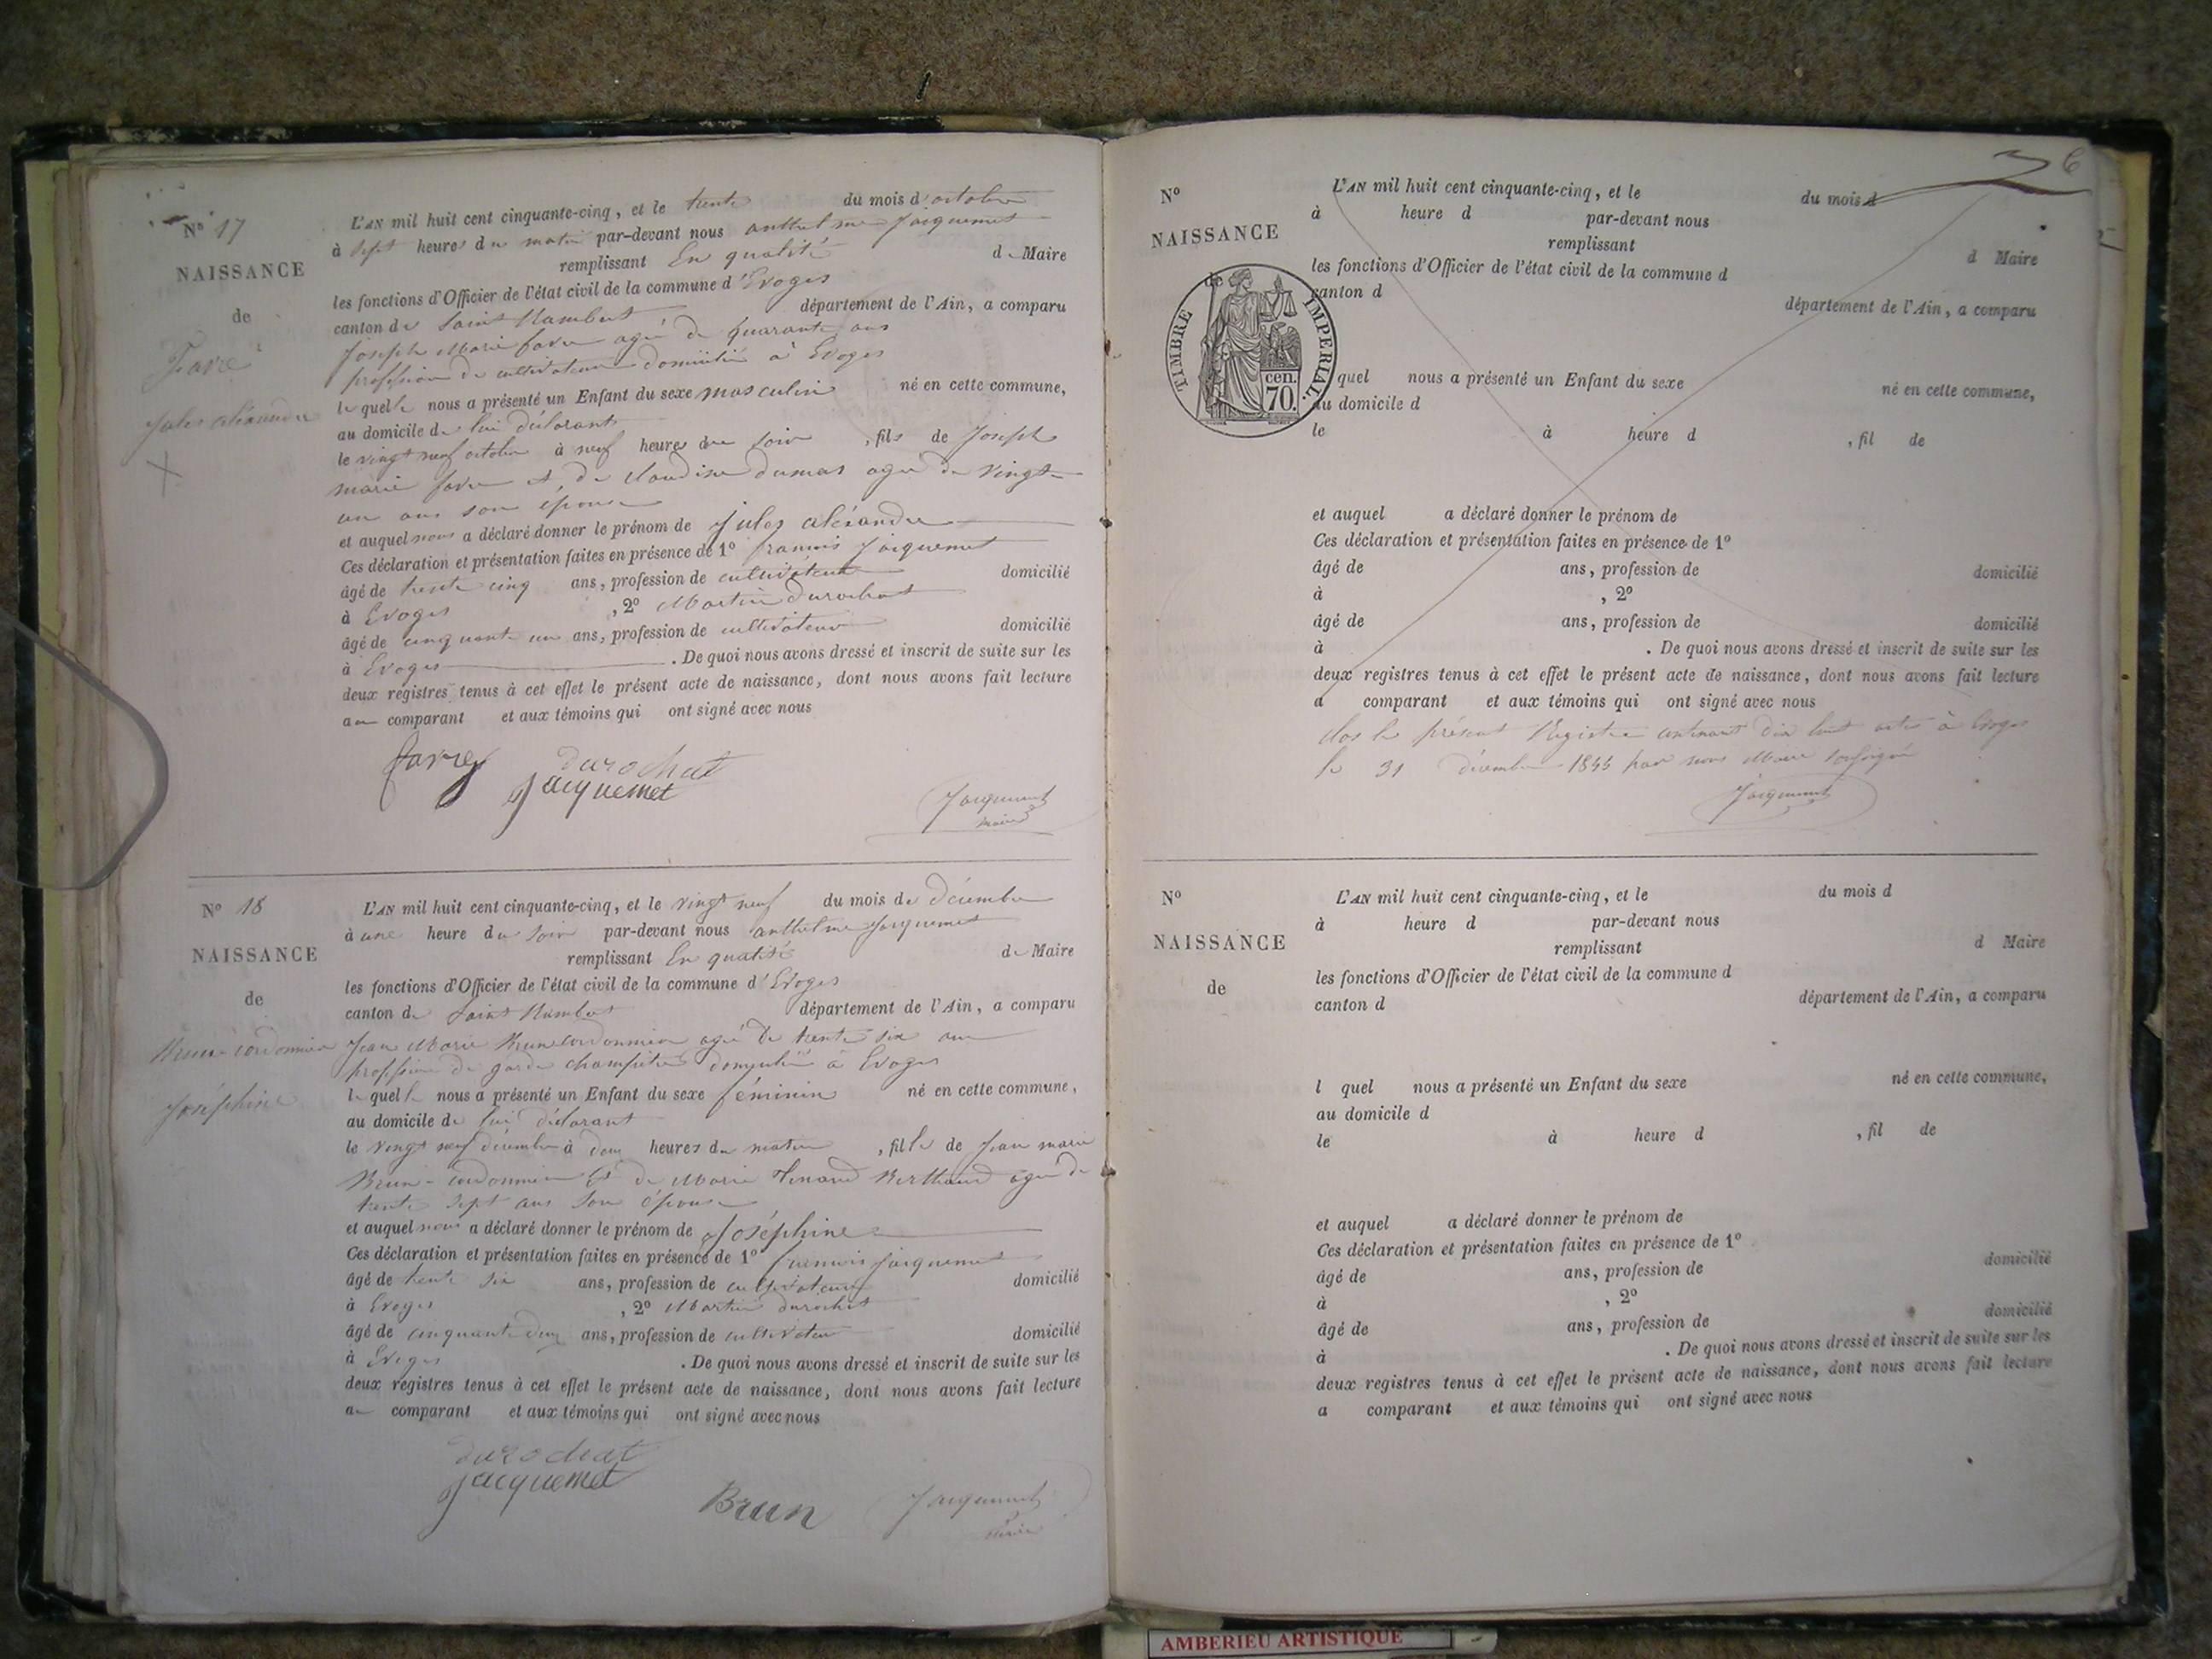 N° 17
NAISSANCE
de
Favre
Jules aléxandre
L'AN mil huit cent cinquante-cinq, et le trente du mois d'octobre
à sept heures du matin par-devant nous anthelme Jacquemet
remplissant En qualité de Maire
les fonctions d'Officier de l'état civil de la commune d'Evoges
canton de Saint Rambert département de l'Ain, a comparu
Joseph Marie favre agé de quarante ans
profession de cultivateur domicilié à Evoges
lequel nous a présenté un Enfant du sexe masculin né en cette commune,
au domicile de lui déclarant
le vingt neuf octobre à neuf heures du soir, fils de Joseph
marie favre et de claudine dumas agée de vingt-
un ans son épouse
et auquel nous a déclaré donner le prénom de Jules aléxandre
Ces déclaration et présentation faites en présence de 1° francois Jacquemet
âgé de trente cinq ans, profession de cultivateur domicilié
à Evoges, 2° Martin durochat
âgé de cinquante un ans, profession de cultivateur domicilié
à Evoges. De quoi nous avons dressé et inscrit de suite sur les
deux registres tenus à cet effet le présent acte de naissance, dont nous avons fait lecture
au comparant et aux témoins qui ont signé avec nous
favre durochat
Jacquemet
Jacquemet
maire
N° 18
NAISSANCE
de
Brun-cordonnier
Joséphine
L'AN mil huit cent cinquante-cinq, et le vingt neuf du mois de décembre
à une heure du soir par-devant nous anthelme Jacquemet
remplissant En qualité de Maire
les fonctions d'Officier de l'état civil de la commune d'Evoges
canton de Saint Rambert département de l'Ain, a comparu
Jean Marie Brun cordonnier agé de trente six ans
profession de garde champêtre domicilié à Evoges
lequel nous a présenté un Enfant du sexe féminin né en cette commune,
au domicile de lui déclarant
le vingt neuf décembre à deux heures du matin, fille de Jean marie
Brun-cordonnier et de Marie Berthaud agée de
trente sept ans son épouse
et auquel nous a déclaré donner le prénom de Joséphine
Ces déclaration et présentation faites en présence de 1° francois Jacquemet
âgé de trente six ans, profession de cultivateur domicilié
à Evoges, 2° Martin durochat
âgé de cinquante deux ans, profession de cultivateur domicilié
à Evoges. De quoi nous avons dressé et inscrit de suite sur les
deux registres tenus à cet effet le présent acte de naissance, dont nous avons fait lecture
au comparant et aux témoins qui ont signé avec nous
durochat
Jacquemet
Brun Jacquemet
maire
6
N°
NAISSANCE
TIMBRE IMPERIAL.
cen.
70.
L'AN mil huit cent cinquante-cinq, et le du mois d
à heure d par-devant nous
remplissant d Maire
les fonctions d'Officier de l'état civil de la commune d
canton d département de l'Ain, a comparu
quel nous a présenté un Enfant du sexe né en cette commune,
au domicile d
le à heure d, fil de
et auquel a déclaré donner le prénom de
Ces déclaration et présentation faites en présence de 1°
âgé de ans, profession de domicilié
à, 2°
âgé de ans, profession de domicilié
à. De quoi nous avons dressé et inscrit de suite sur les
deux registres tenus à cet effet le présent acte de naissance, dont nous avons fait lecture
a comparant et aux témoins qui ont signé avec nous
clos le présent Registre contenant dix huit actes à Evoges
le 31 décembre 1855 par nous Maire soussigné
Jacquemet
N°
NAISSANCE
de
L'AN mil huit cent cinquante-cinq, et le du mois d
à heure d par-devant nous
remplissant d Maire
les fonctions d'Officier de l'état civil de la commune d
canton d département de l'Ain, a comparu
l quel nous a présenté un Enfant du sexe né en cette commune,
au domicile d
le à heure d, fil de
et auquel a déclaré donner le prénom de
Ces déclaration et présentation faites en présence de 1°
âgé de ans, profession de domicilié
à, 2°
âgé de ans, profession de domicilié
à. De quoi nous avons dressé et inscrit de suite sur les
deux registres tenus à cet effet le présent acte de naissance, dont nous avons fait lecture
a comparant et aux témoins qui ont signé avec nous
AMBERIEU ARTISTIQUE